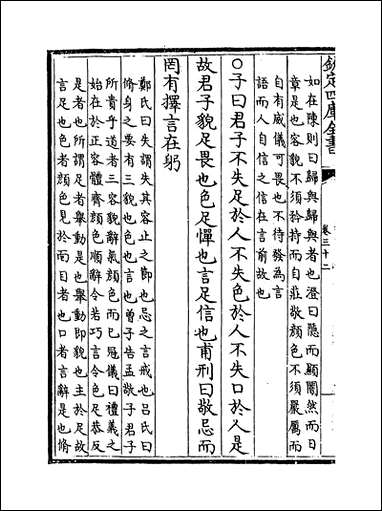 欽定四庫全書
卷三十二
如在陳則曰歸與歸與者也澄曰隠而顯闇然而日
章是也容貌不須矜持而自莊敬顔色不須嚴厲而
自有威儀可畏也不待發為言
語而人自信之信在言前故也
○子曰君子不失足於人不失色於人不失口於人是
故君子貌足畏也色足憚也言足信也甫刑曰敬忌而
罔有擇言在躬
鄭氏曰失謂失其容止之節也忌之言戒也吕氏曰
脩身之要有三貌也色也言也曾子告孟敬子君子
所貴乎道者三容貌辭氣顔色而已冠儀曰禮義之
始在於正容體齊顔色順辭令若巧言令色足恭反
是者也所謂足者舉動是也舉動即貌也主於足故
言足也色者顔色見於面目者也口者言辭是也脩